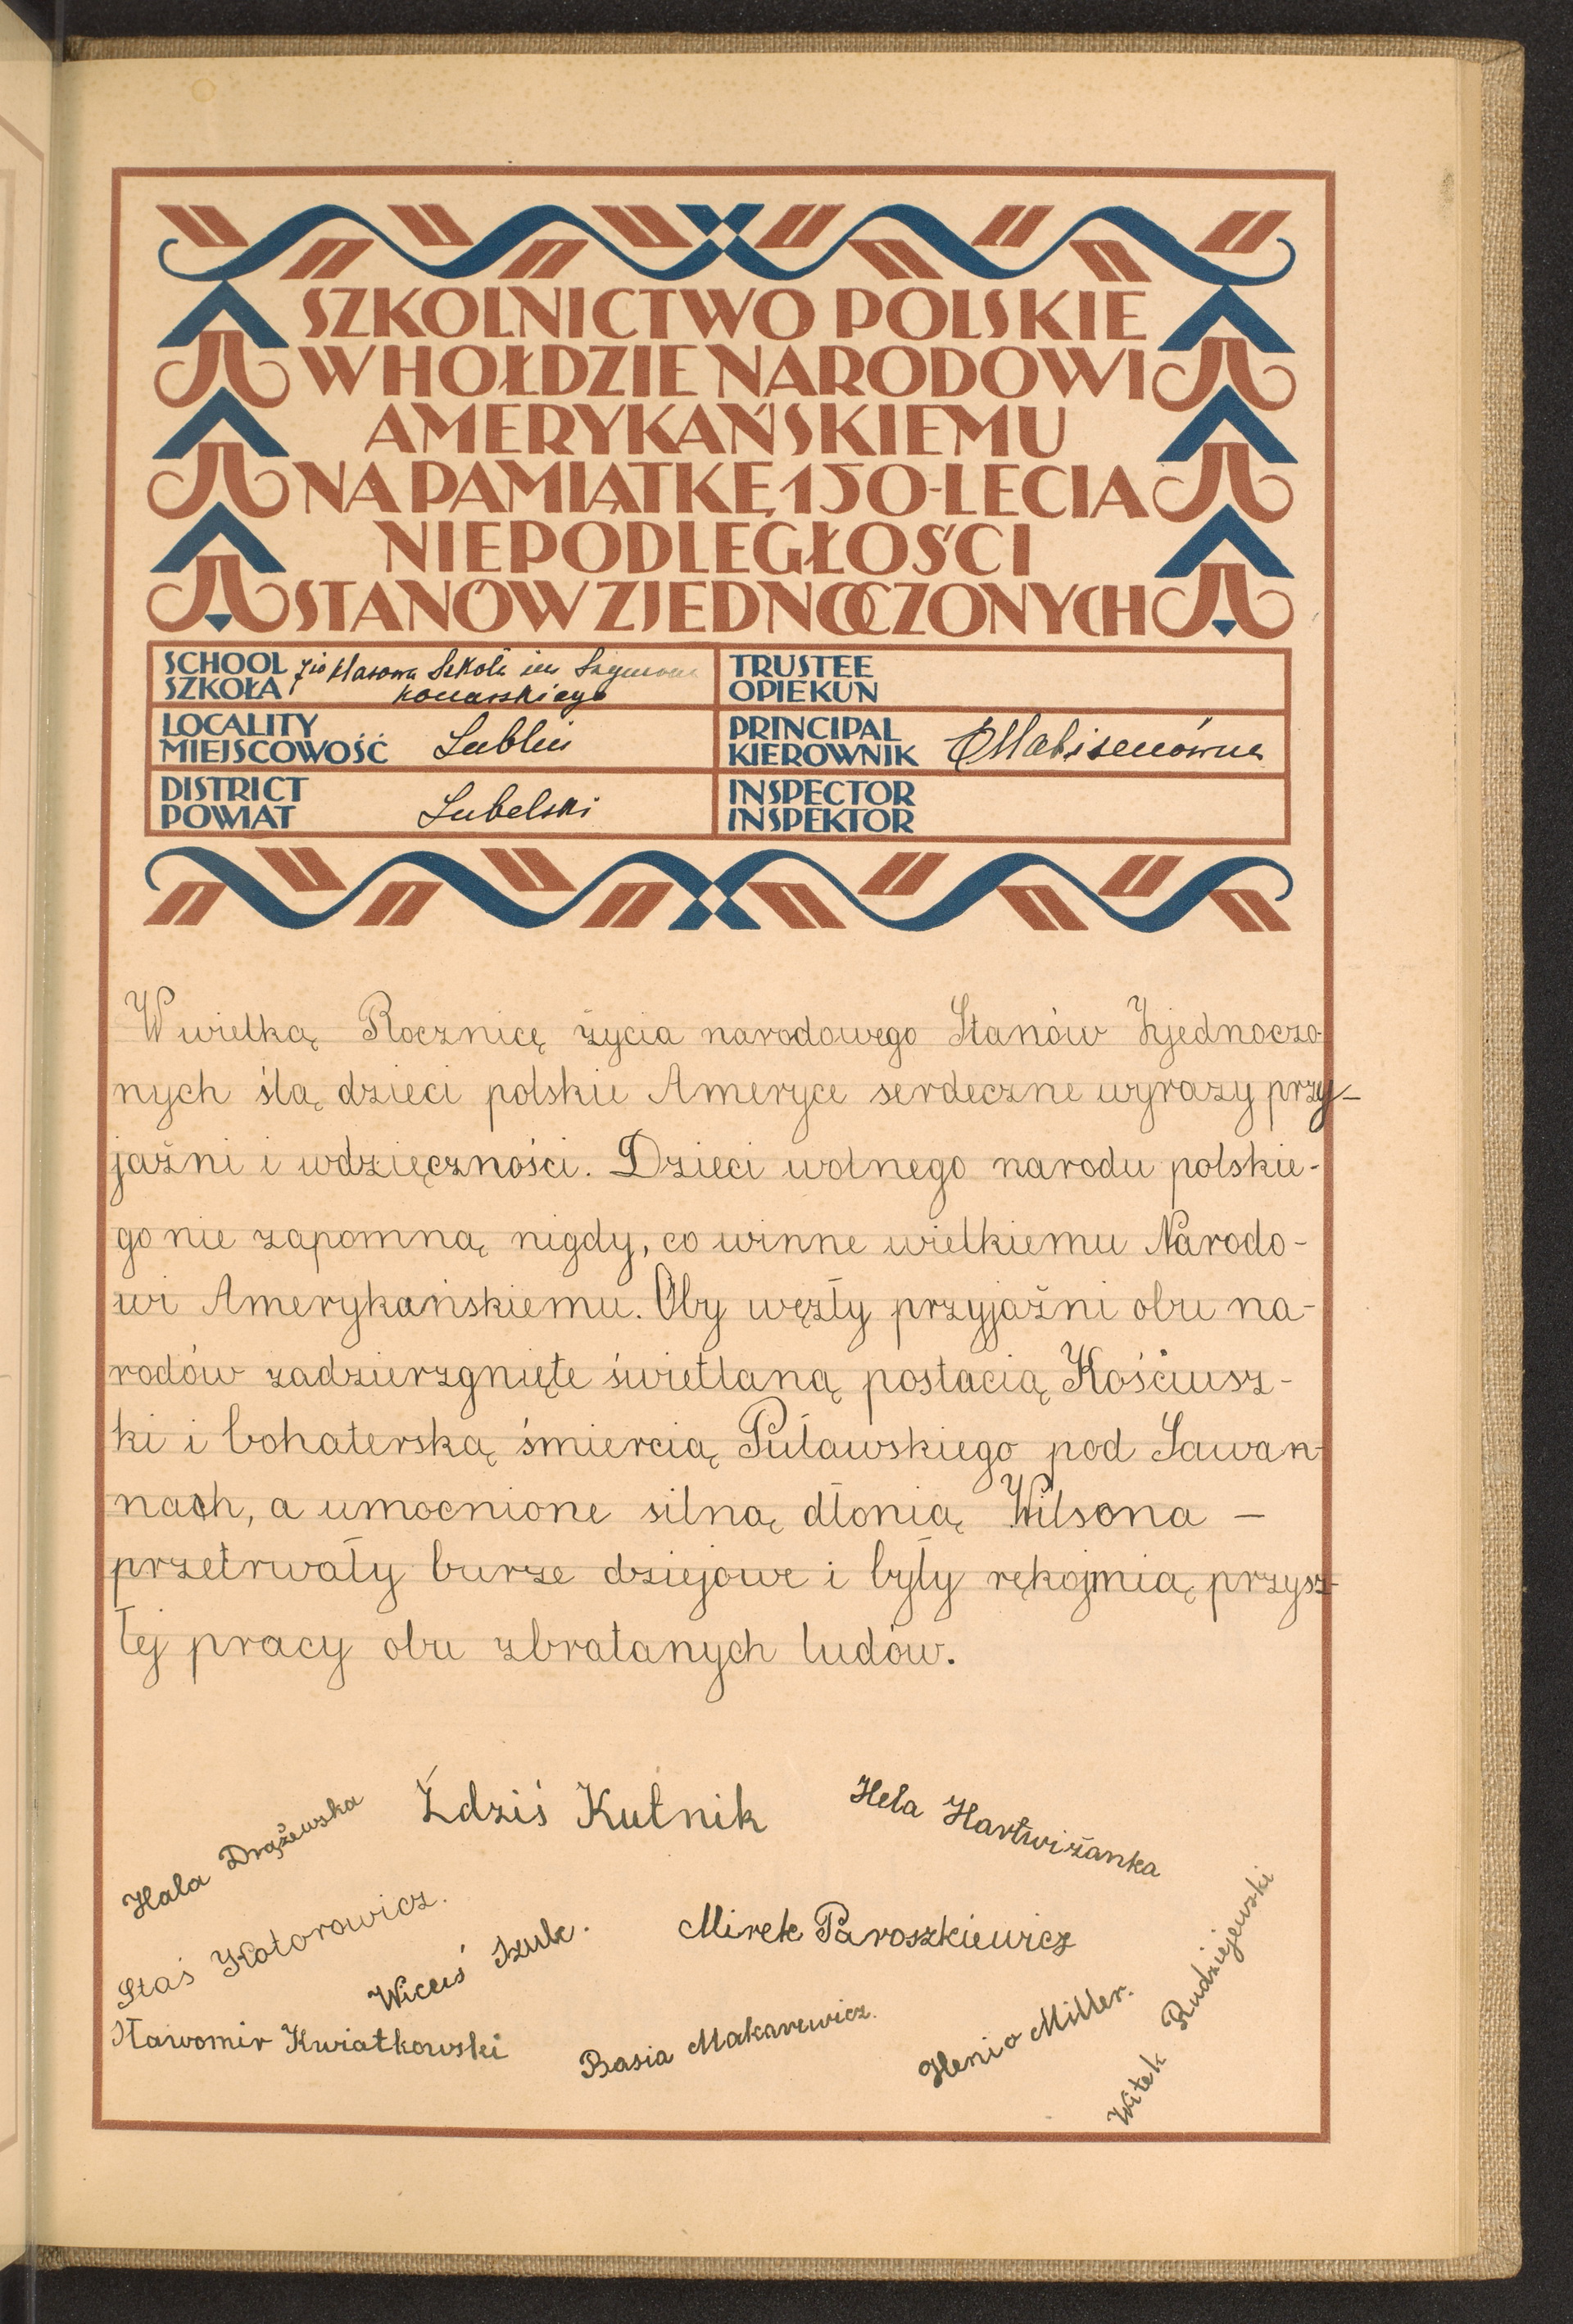 SZKOLNICTWO POLSKIE
W HOŁDZIE NARODOWI
AMERYKAŃSKIEMU
NA PAMIĄTKĘ 150-LECIA
NIEPODLEGŁOŚCI
STANÓW ZJEDNOCZONYCH
SCHOOL
SZKOŁA
7io klasowa Szkoła im Szymona
Konarskiego
TRUSTEE
OPIEKUN
LOCALITY
MIEJSCOWOŚĆ
Lublin
PRINCIPAL
KIEROWNIK
DISTRICT
POWIAT
Lubelski
INSPECTOR
INSPEKTOR
W wielką Rocznicę życia narodowego Stanów Zjednoczo-
nych ślą dzieci polskie Ameryce serdeczne wyrazy przy-
jaźni i wdzięczności. Dzieci wolnego narodu polskie-
go nie zapomną nigdy, co winne wielkiemu Narodo-
wi Amerykańskiemu. Oby węzły przyjaźni obu na-
rodów zadzierzgnięte świetlaną postacią Kościusz-
ki i bohaterską śmiercią Puławskiego pod Sawan-
nach, a umocnione silną dłonią Wilsona —
przetrwały burze dziejowe i były rękojmią przysz-
łej pracy obu zbratanych ludów.
Hala Drążewska
Zdziś Kutnik
Hela Hartwiżanka
Staś Kotorowicz.
Wicuś Szulc.
Mirek Paroszkiewicz
Sławomir Kwiatkowski
Basia Makarewicz.
Henio Miller.
Witek Rudziejewski